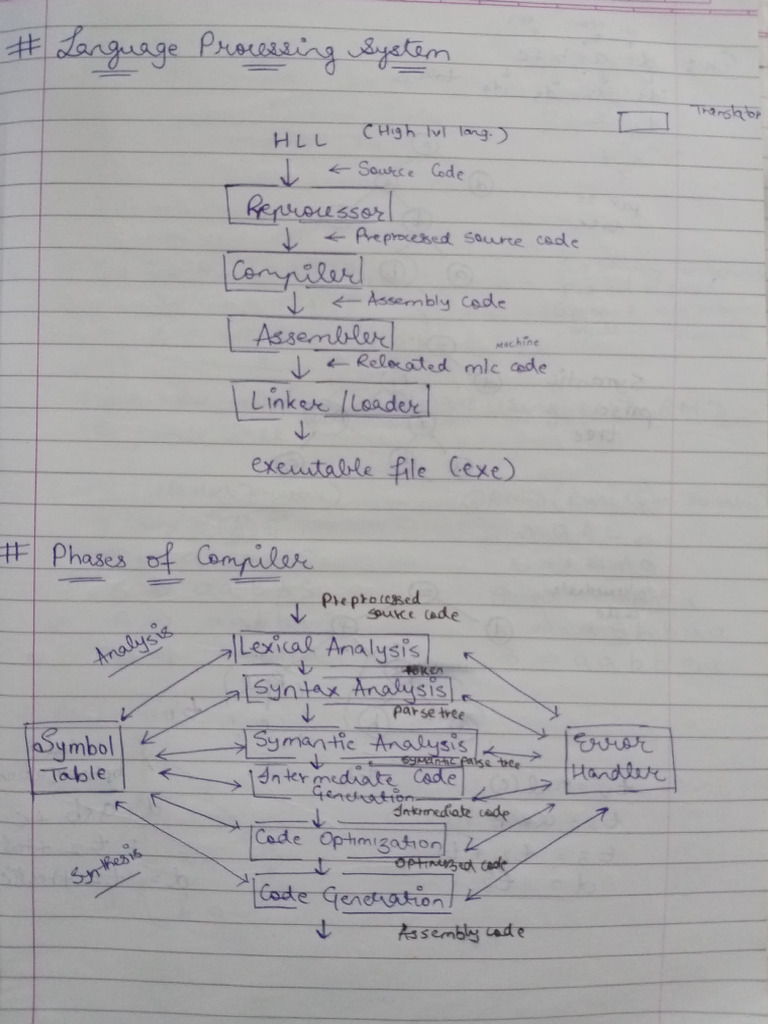 # Language Processing System
Translator
HLL (High lvl lang.)
← Source Code
Reprocessor
← Preprocessed source code
Compiler
← Assembly code
Assembler
Machine
← Relocated m/c code
Linker / Loader
executable file (.exe)
# Phases of Compiler
Preprocessed
source code
Analysis
Lexical Analysis
token
Syntax Analysis
Parse tree
Symbol
Table
Symantic Analysis
Symantic parse tree
Error
Handler
Intermediate Code
Generation
Intermediate code
Code Optimization
Optimized code
Synthesis
Code Generation
Assembly code